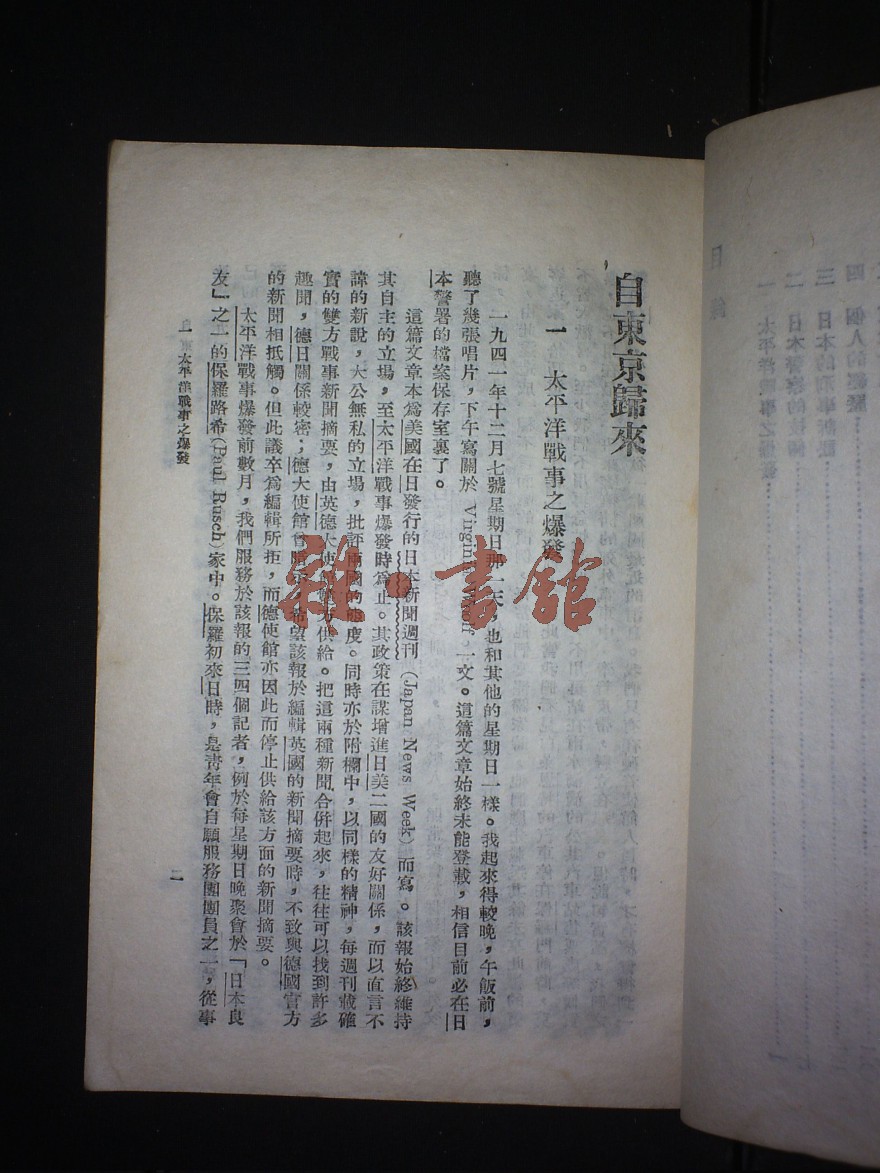 自東京歸來
一 太平洋戰事之爆發
一九四一年十二月七號星期日那一天,也和其他的星期日一樣。我起來得較晚,午飯前,
聽了幾張唱片,下午寫關於 一文。這篇文章始終未能登載,相信目前必在日
本警署的檔案保存室裏了。
這篇文章本爲美國在日發行的日本新聞週刊(Japan News Week)而寫。該報始終維持
其自主的立場,至太平洋戰事爆發時爲止。其政策在謀增進日美二國的友好關係,而以直言不
諱的新說,大公無私的立場,批評兩國的態度。同時亦於附欄中,以同樣的精神,每週刊載確
實的雙方戰事新聞摘要,由英德大使館 方供給。把這兩種新聞合併起來,往往可以找到許多
趣聞,德日關係較密;德大使館會 希望該報於編輯英國的新聞摘要時,不致與德國官方
的新聞相抵觸。但此議卒爲編輯所拒,而德使館亦因此而停止供給該方面的新聞摘要。
太平洋戰事爆發前數月,我們服務於該報的三四個記者,例於每星期日晚聚會於「日本良
友」之一的保羅路希(Paul Rusch)家中。保羅初來日時,是靑年會自願服務團團員之一,從事
一 太平洋戰事之爆發
二
雜·書館
目 錄
一 太平洋戰事之爆發
二 日本警察的
三 日本的刑事
四 個人的經歷